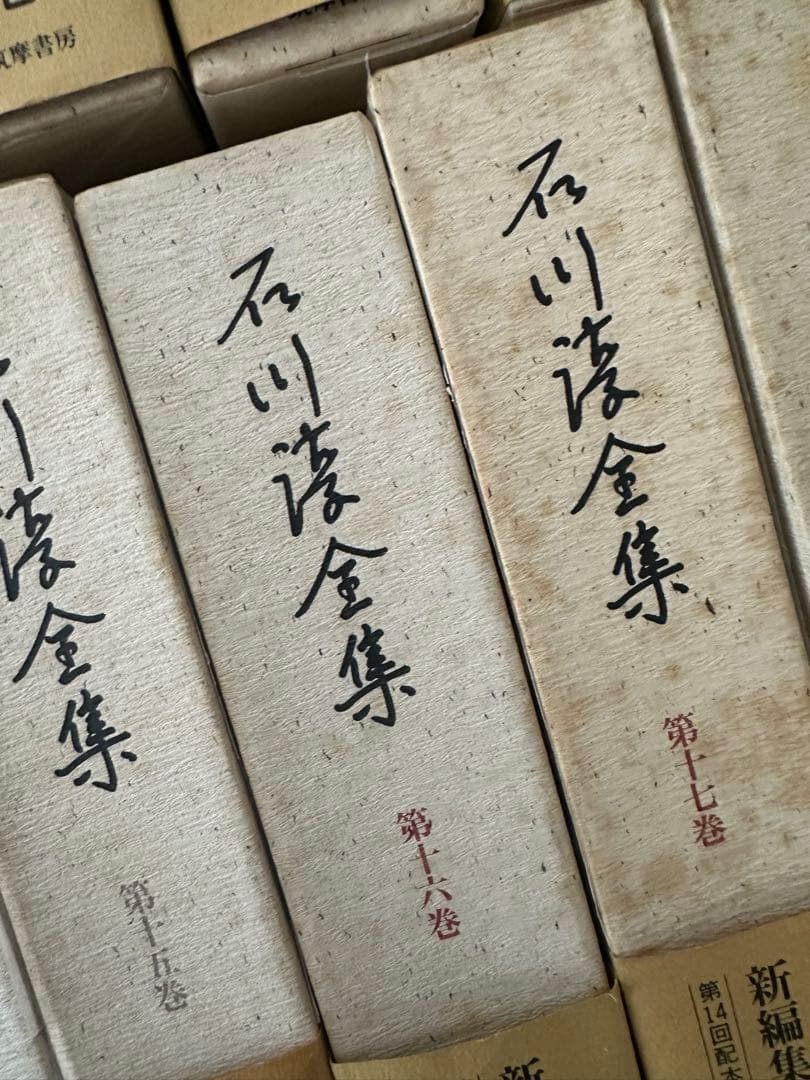 筑摩書房
石川淳全集
第十七巻
新編集
第14回配本
石川淳全集
第十六巻
新
川淳全集
第十五巻